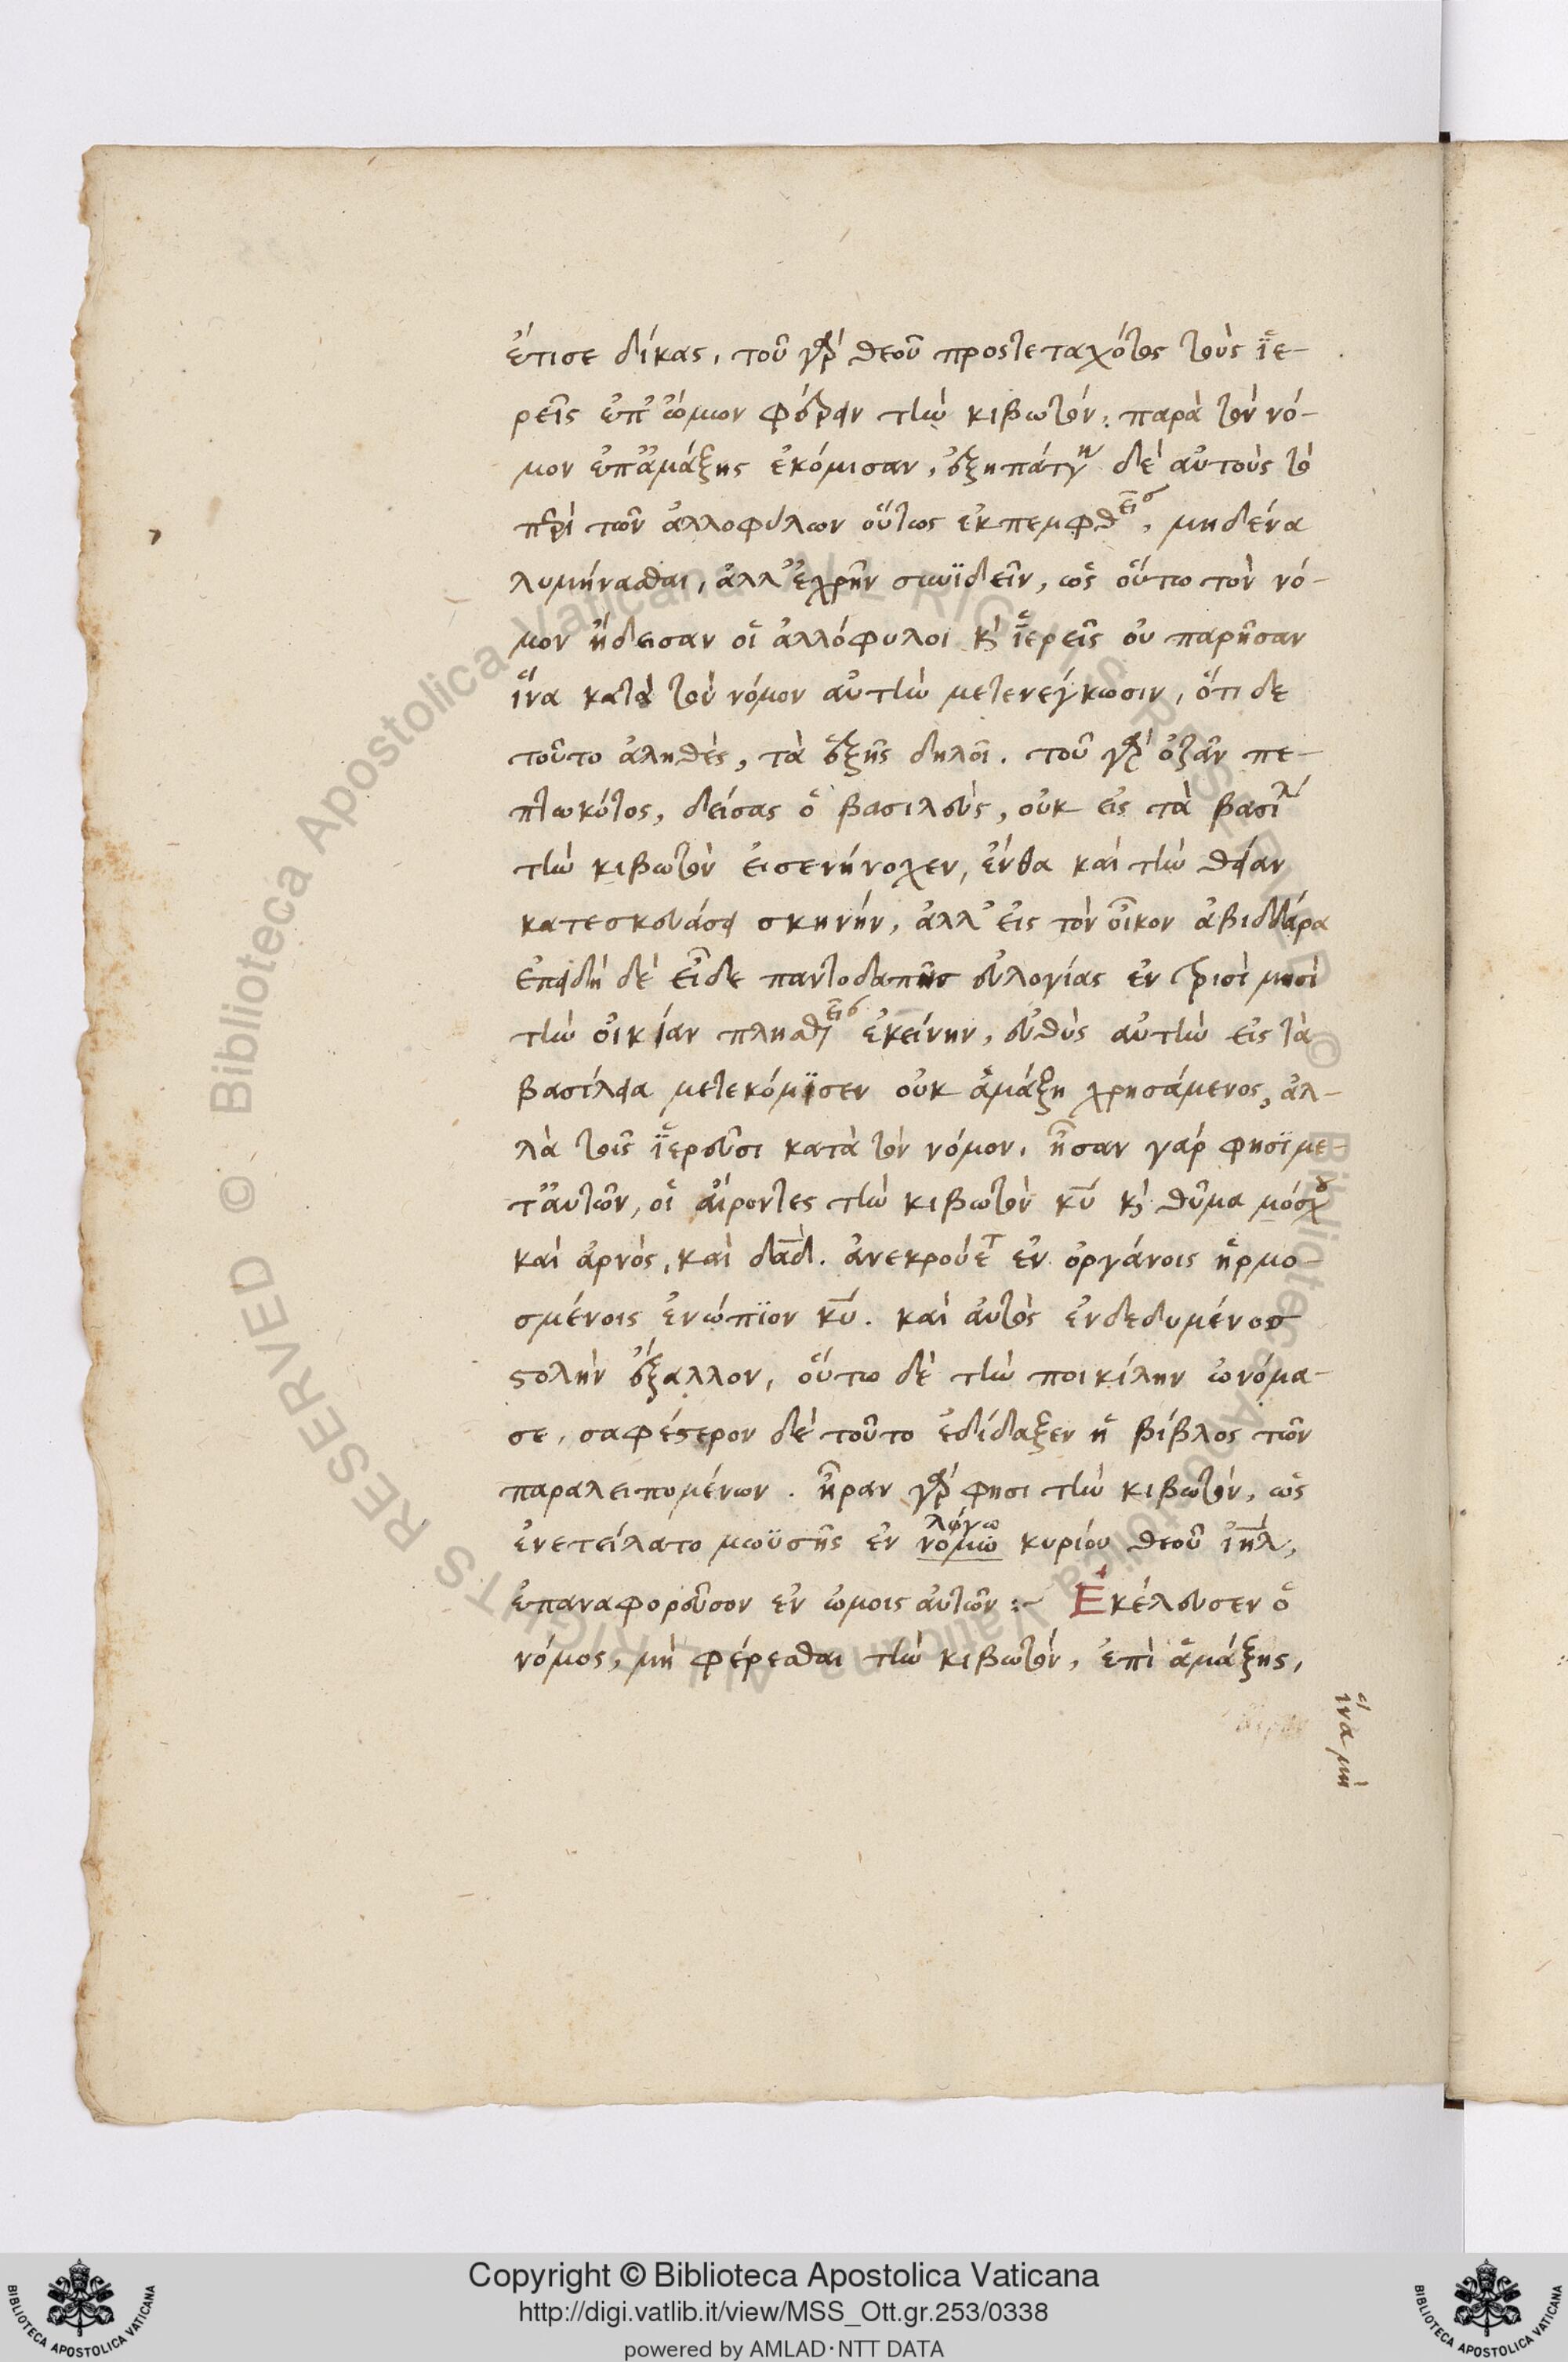 ἔτισε δίκας, τοῦ γὰρ θεοῦ προστεταχότος τοὺς ἱε-
ρεῖς ἐπ' ὤμων φέρειν τὴν κιβωτόν· παρὰ τὸν νό-
μον ἐπ' ἁμάξης ἐκόμισαν, ἐξηπάτην δὲ αὐτοὺς τὸ
περὶ τῶν ἀλλοφύλων οὕτως ἐκπεμφθεῖσ, μηδένα
λυμήνασθαι, ἀλλ' ἐχρῆν συνϊδεῖν, ὡς οὔτω τὸν νό-
μον ἤδεισαν οἱ ἀλλόφυλοι κὶ ἱερεῖς οὐ παρῆσαν
ἵνα κατὰ τὸν νόμον αὐτὴν μετενεγκωσιν, ὅτι δε
τοῦτο ἀληθὲς, τὰ ἑξῆς δηλοῖ. τοῦ γὰρ ὀζᾶν πε-
πτωκότος, δείσας ὁ βασιλεὺς, οὐκ εἰς τὰ βασίλ
τὴν κιβωτὸν εἰσενήνοχεν, ἔνθα καὶ τὴν θείαν
κατεσκεύασε σκηνήν, ἀλλ' εἰς τὸν οἶκον ἀβεδδάρα
ἐπειδὴ δὲ εἶδε παντοδαπῆς εὐλογίας ἐν τρισὶ μησὶ
τὴν οἰκίαν πλησθεῖσ ἐκείνην, εὐθὺς αὐτὴν εἰς τὰ
βασίλεια μετεκόμϊσεν οὐκ ἁμάξῃ χρησάμενος, ἀλ-
λὰ τοῖς ἱερεῦσι κατὰ τὸν νόμον. ἦσαν γάρ φησϊ με-
τ' αὐτῶν, οἱ αἴροντες τὴν κιβωτὸν κυ κὶ θῦμα μόσχου
καὶ ἀρνὸς, καὶ δαδ. ἀνεκρούετ ἐν ὀργάνοις ἡρμο-
σμένοις ἐνώπϊον κυ. καὶ αὐτὸς ἐνδεδυμένος
στολὴν ἔξαλλον, οὕτω δὲ τὴν ποικίλην ὠνόμα-
σε, σαφέστερον δὲ τοῦτο ἐδίδαξεν ἡ βίβλος τῶν
παραλειπομένων. ἦραν γάρ φησι τὴν κιβωτὸν, ὡς
λόγω
ἐνετείλατο μωϋσῆς ἐν νόμω κυρίου θεοῦ ιηλ,
ἐπαναφορεῦσον ἐν ὤμοις αὐτῶν :~ Ἐκέλευσεν ὁ
νόμος, μὴ φέρεσθαι τὴν κιβωτὸν, ἐπὶ ἁμάξης,
ἵνα μὴ
Copyright © Biblioteca Apostolica Vaticana
http://digi.vatlib.it/view/MSS_Ott.gr.253/0338
powered by AMLAD·NTT DATA
BIBLIOTECA APOSTOLICA VATICANA
BIBLIOTECA APOSTOLICA VATICANA
© Biblioteca Apostolica Vaticana ALL RIGHTS RESERVED
© Biblioteca Apostolica Vaticana ALL RIGHTS RESERVED